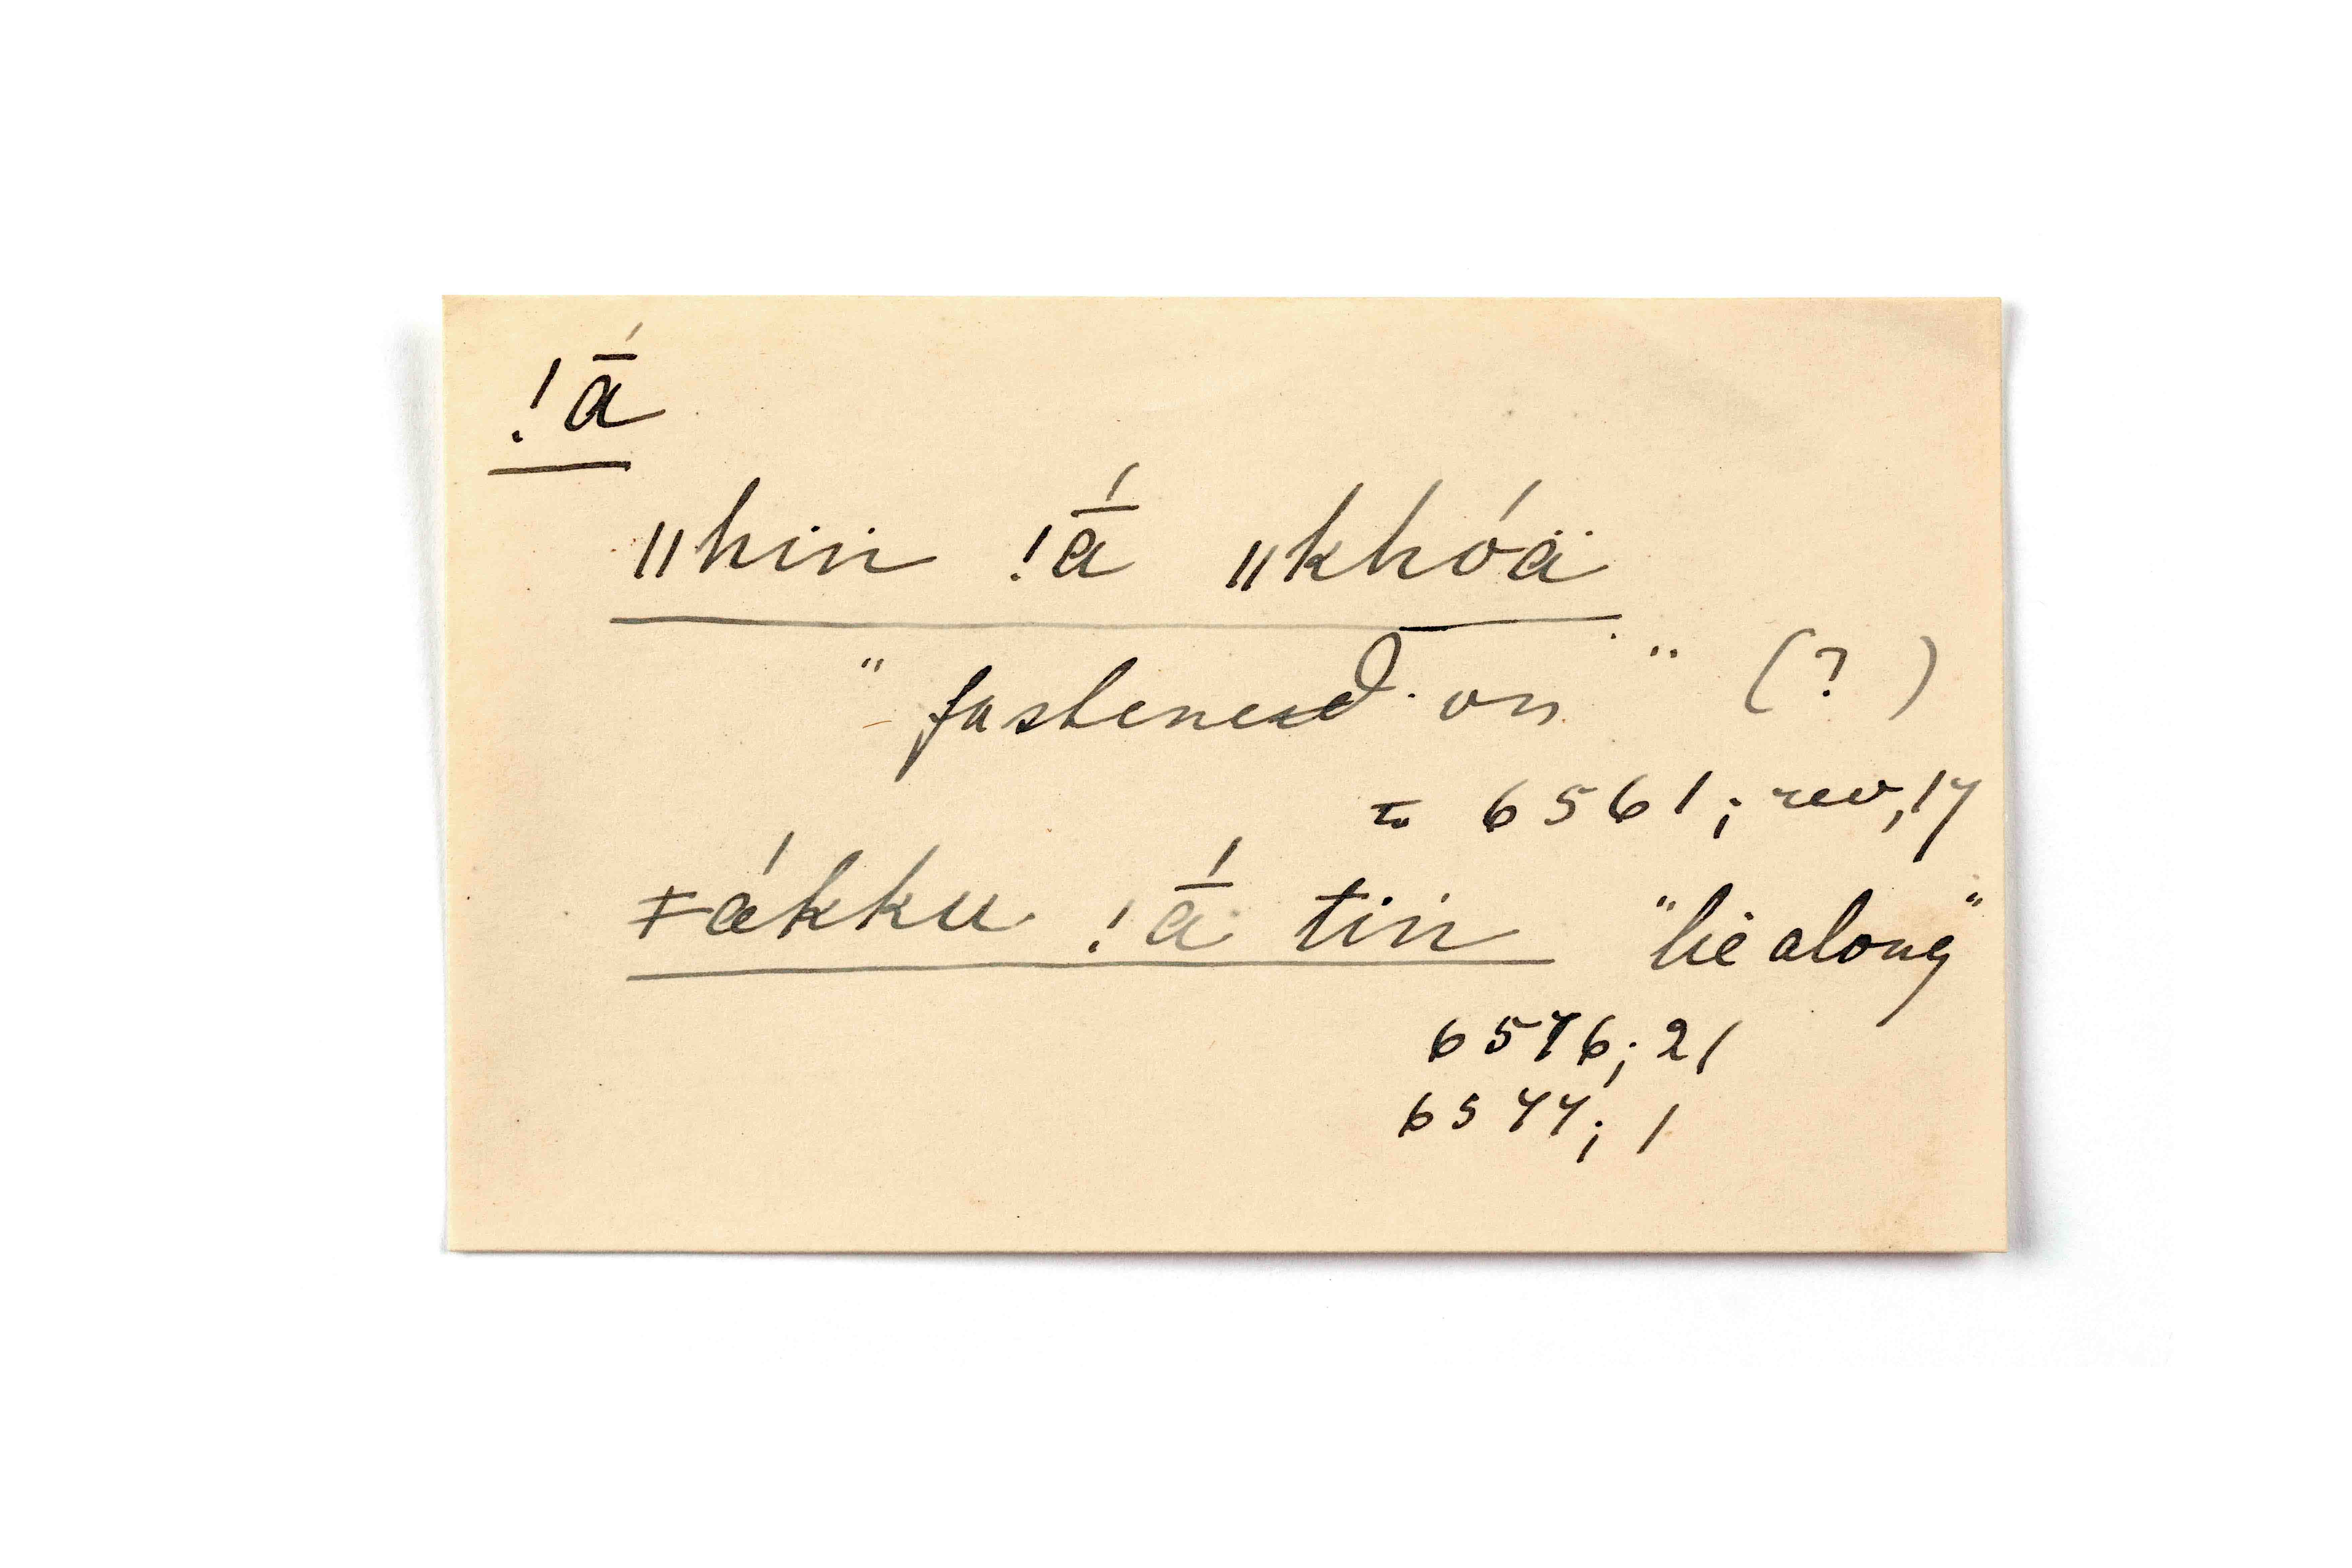 !ā́
ǁhin !ā́ ǁkhóä
"fastened on" (?)
= 6561; rev, 17
ǂákku !ā́ tin "lie along"
6576; 21
6577; 1